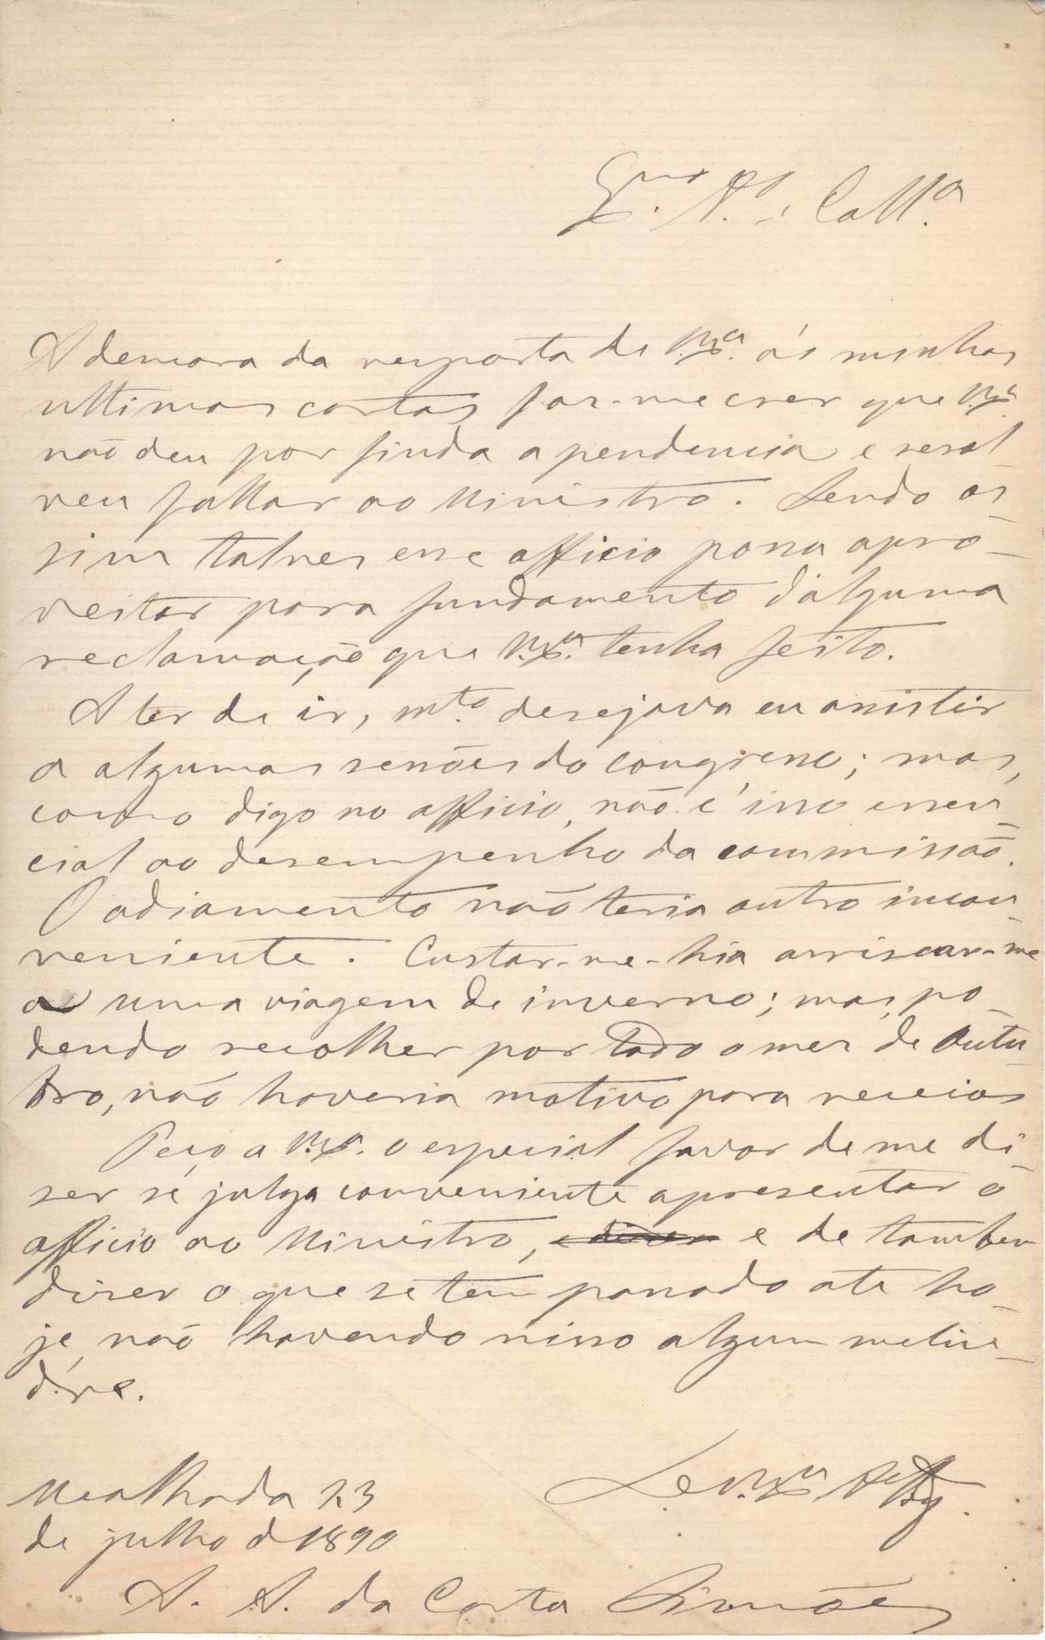 Exmo Am.o e Coll.a
A demora da resposta de V. Exa. ás minhas
ultimas cartas faz-me crer que V. Exa.
não deu por finda a pendencia e resol
veu fallar ao Ministro. Sendo as-
sim talvez esse officio possa apro-
veitar para fundamento d'alguma
reclamação que V. Exa. tenha feito.
A ter de ir, mto. desejava eu assistir
a algumas sessões do congresso; mas,
como digo no officio, não é isso essen-
cial ao desempenho da commissão.
O adiamento não teria outro incon-
veniente. Custar-me-hia arriscar-me
a uma viagem de inverno; mas, po-
dendo recolher por todo o mez de Outu
bro, não haveria motivo para receios
Peço a V. Exa. o especial favor de me di-
zer se julga conveniente apresentar o
officio ao Ministro, e de tambem
dizer o que se tem passado até ho-
je, não havendo nisso algum melin-
dre.
De V. Exa.
Mealhada 23
de julho d 1890
A. A. da Costa Simões